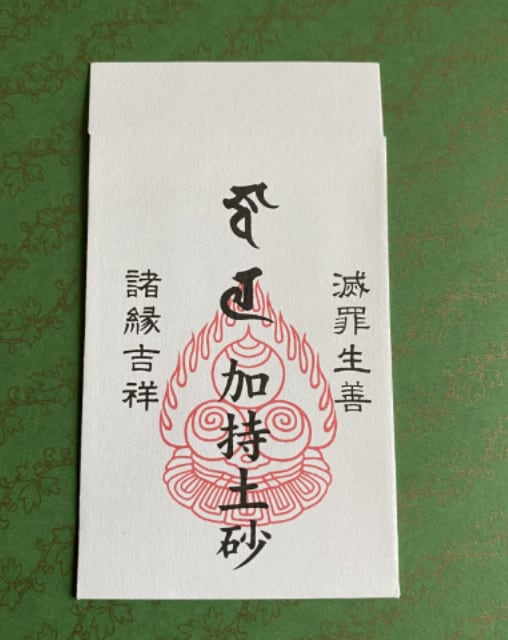 滅罪生善
加持土砂
諸縁吉祥